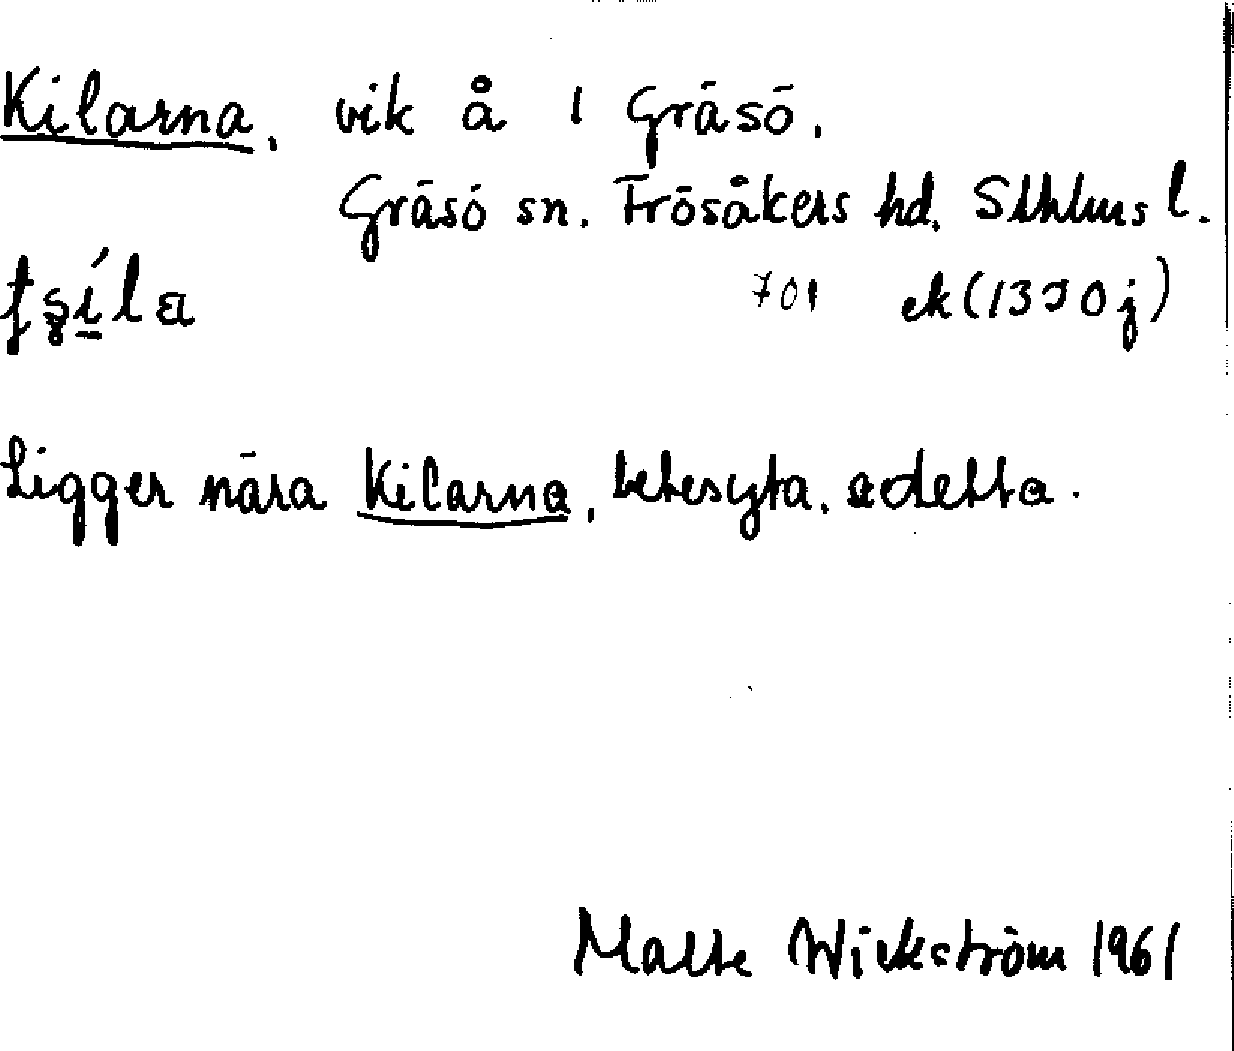 Kilarna, vik å 1 Gräsö,
Gräsö sn. Frösåkers hd. Sthlms l.
701 ek (1390j)
Ligger nära Kilarna, betesyta, adetta.
Malte Wickström 1961